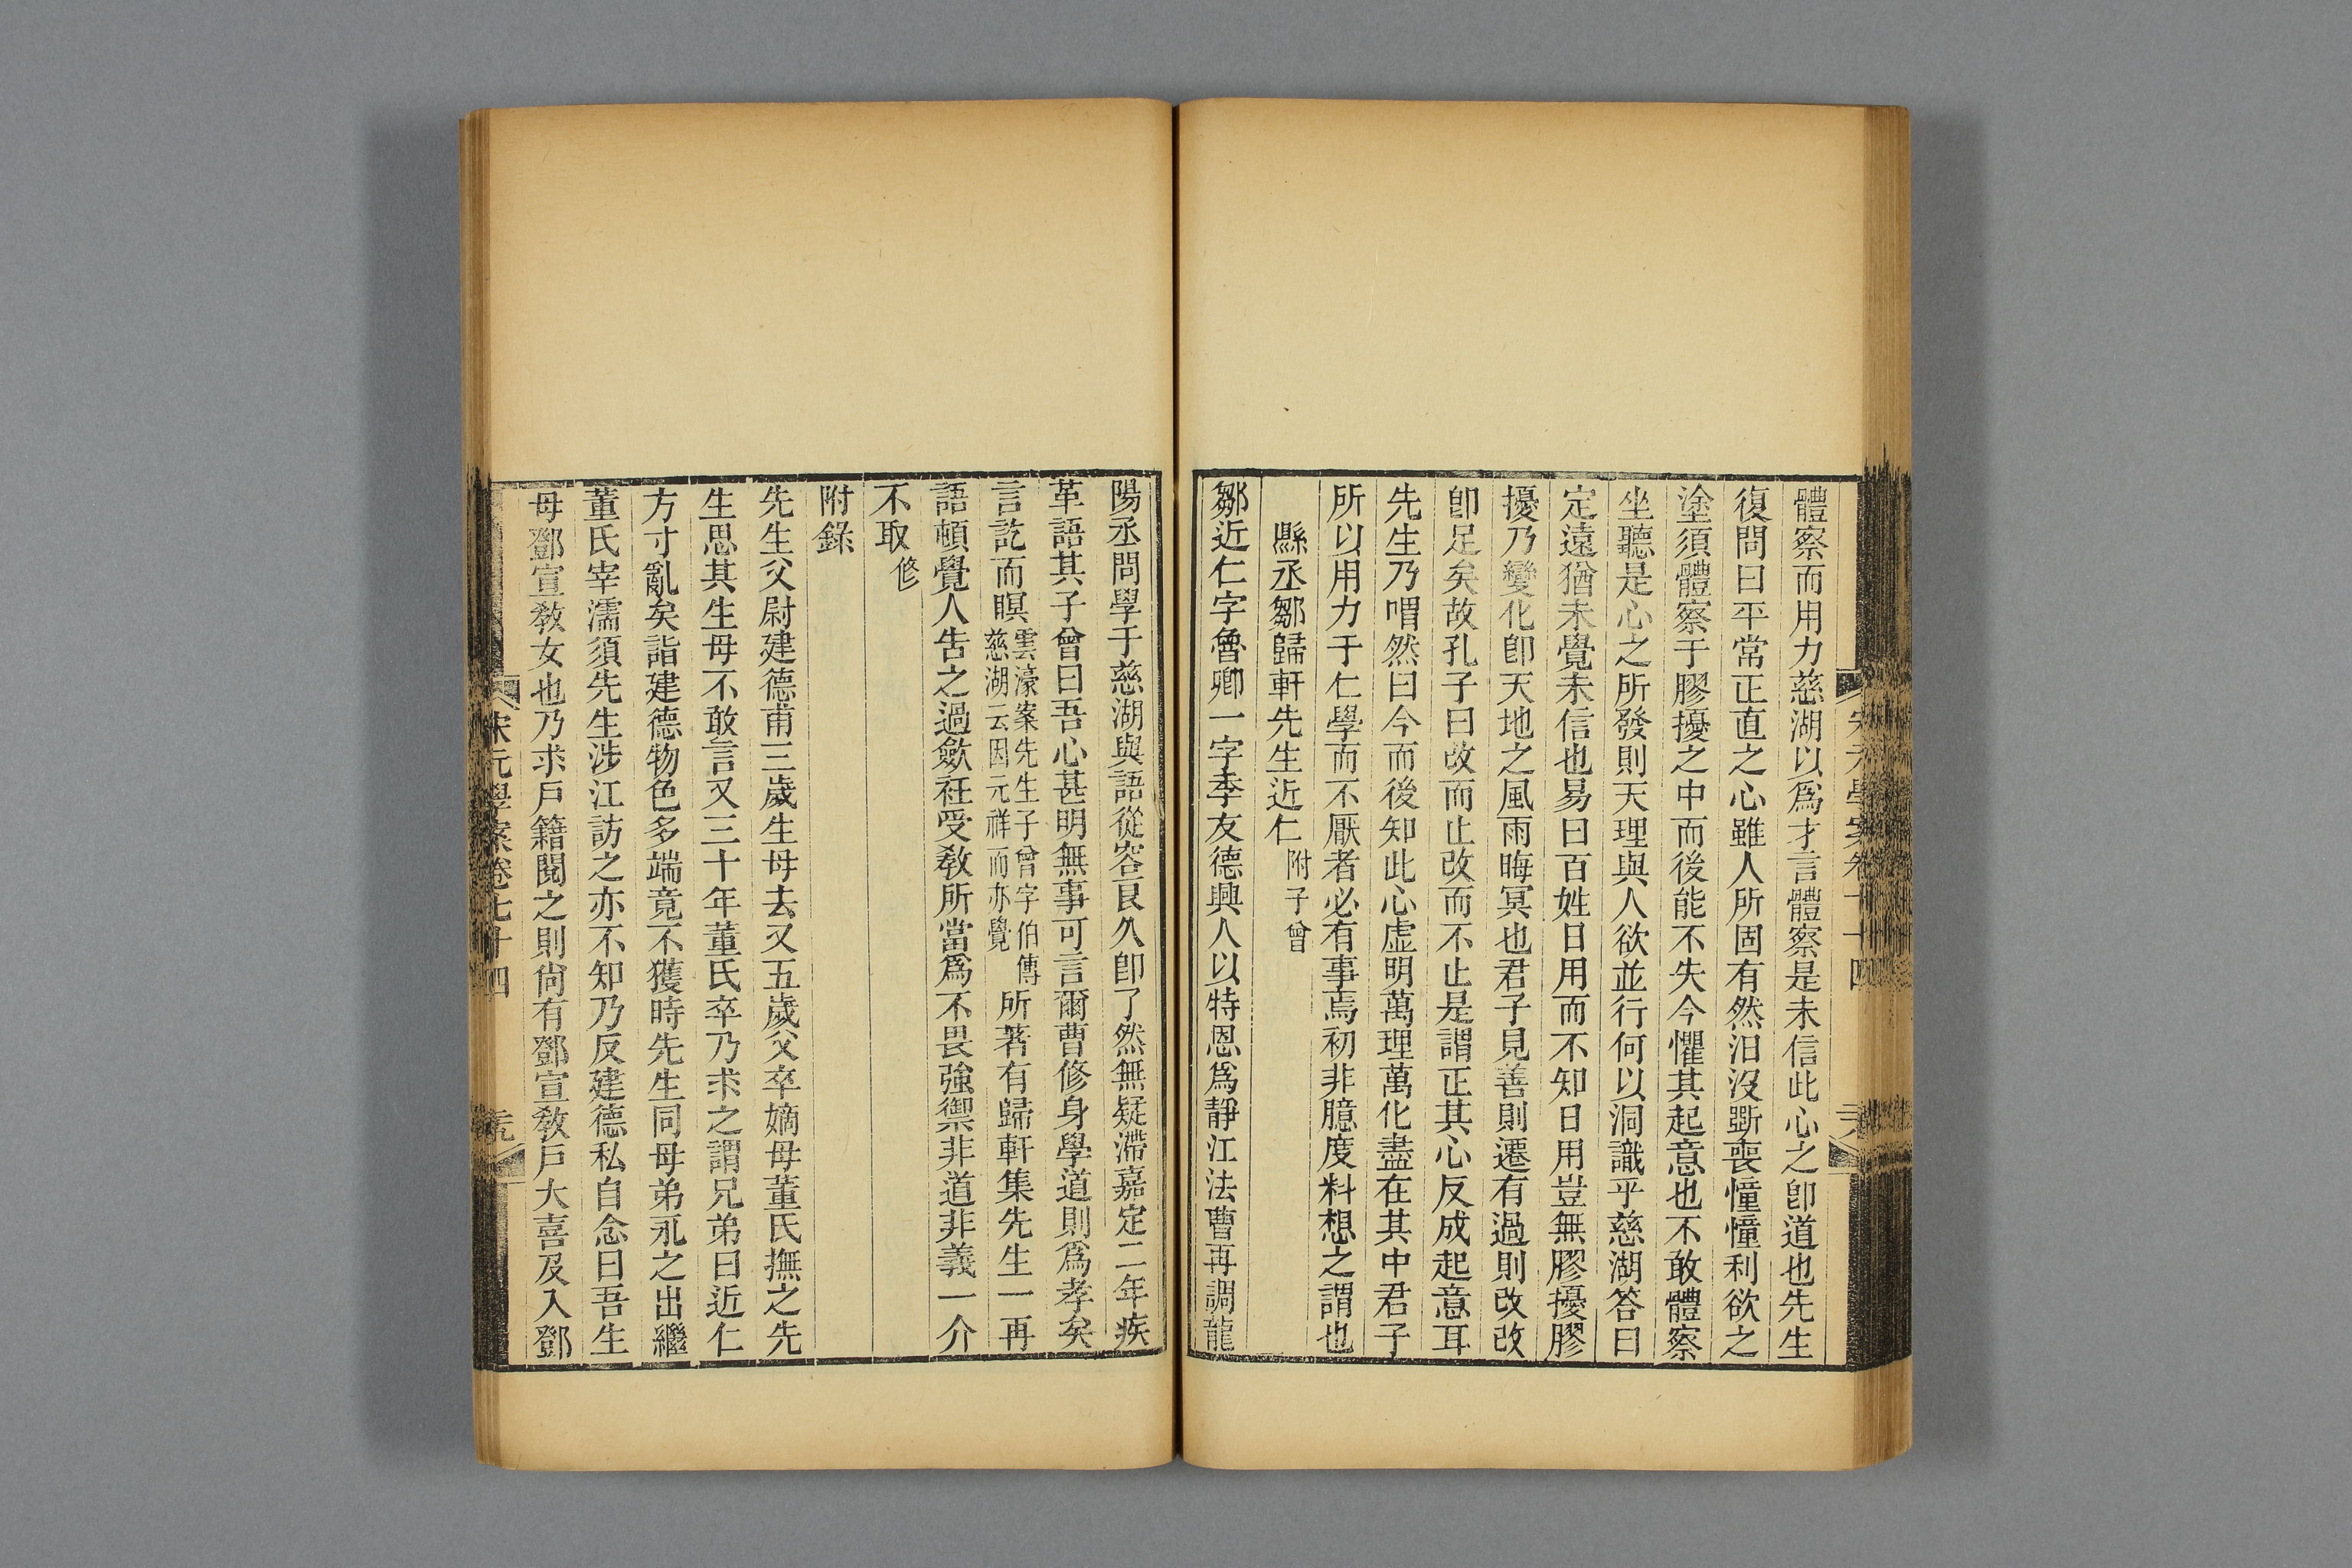 體察而用力慈湖以爲才言體察是未信此心之卽道也先生
復問曰平常正直之心雖人所固有然汨沒斲喪憧憧利欲之
塗須體察于膠擾之中而後能不失今懼其起意也不敢體察
坐聽是心之所發則天理與人欲並行何以洞識乎慈湖答曰
定遠猶未覺未信也易曰百姓日用而不知日用豈無膠擾膠
擾乃變化卽天地之風雨晦冥也君子見善則遷有過則改改
卽足矣故孔子曰改而止改而不止是謂正其心反成起意耳
先生乃喟然曰今而後知此心虛明萬理萬化盡在其中君子
所以用力于仁學而不厭者必有事焉初非臆度料想之謂也
縣丞鄒歸軒先生近仁附子曾
鄒近仁字魯卿一字季友德興人以特恩爲靜江法曹再調龍
陽丞問學于慈湖與語從容良久卽了然無疑滯嘉定二年疾
革語其子曾曰吾心甚明無事可言爾曹修身學道則爲孝矣
言訖而瞑雲濠案先生子曾字伯傳慈湖云因元祥而亦覺所著有歸軒集先生一再
語頓覺人告之過斂衽受敎所當爲不畏強禦非道非義一介
不取修
附錄
先生父尉建德甫三歲生母去又五歲父卒嫡母董氏撫之先
生思其生母不敢言又三十年董氏卒乃求之謂兄弟曰近仁
方寸亂矣詣建德物色多端竟不獲時先生同母弟汃之出繼
董氏宰濡須先生涉江訪之亦不知乃反建德私自念曰吾生
母鄧宣敎女也乃求戶籍閱之則尙有鄧宣敎戶大喜及入鄧
宋元學案卷七十四